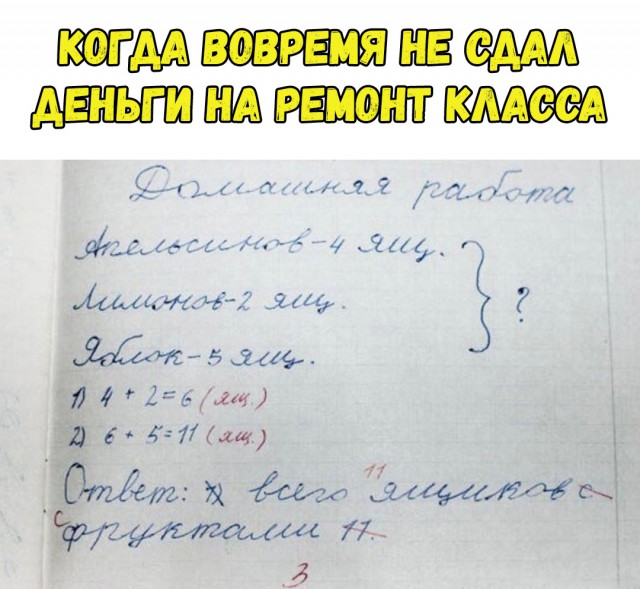 КОГДА ВОВРЕМЯ НЕ СДАЛ
ДЕНЬГИ НА РЕМОНТ КЛАССА
Домашняя работа
Апельсинов-4 ящ.
Лимонов-2 ящ.
Яблок-5 ящ.
?
1) 4 + 2=6 (ящ.)
2) 6 + 5=11 (ящ.)
11
Ответ: всего ящиков с
с фруктами 11.
3